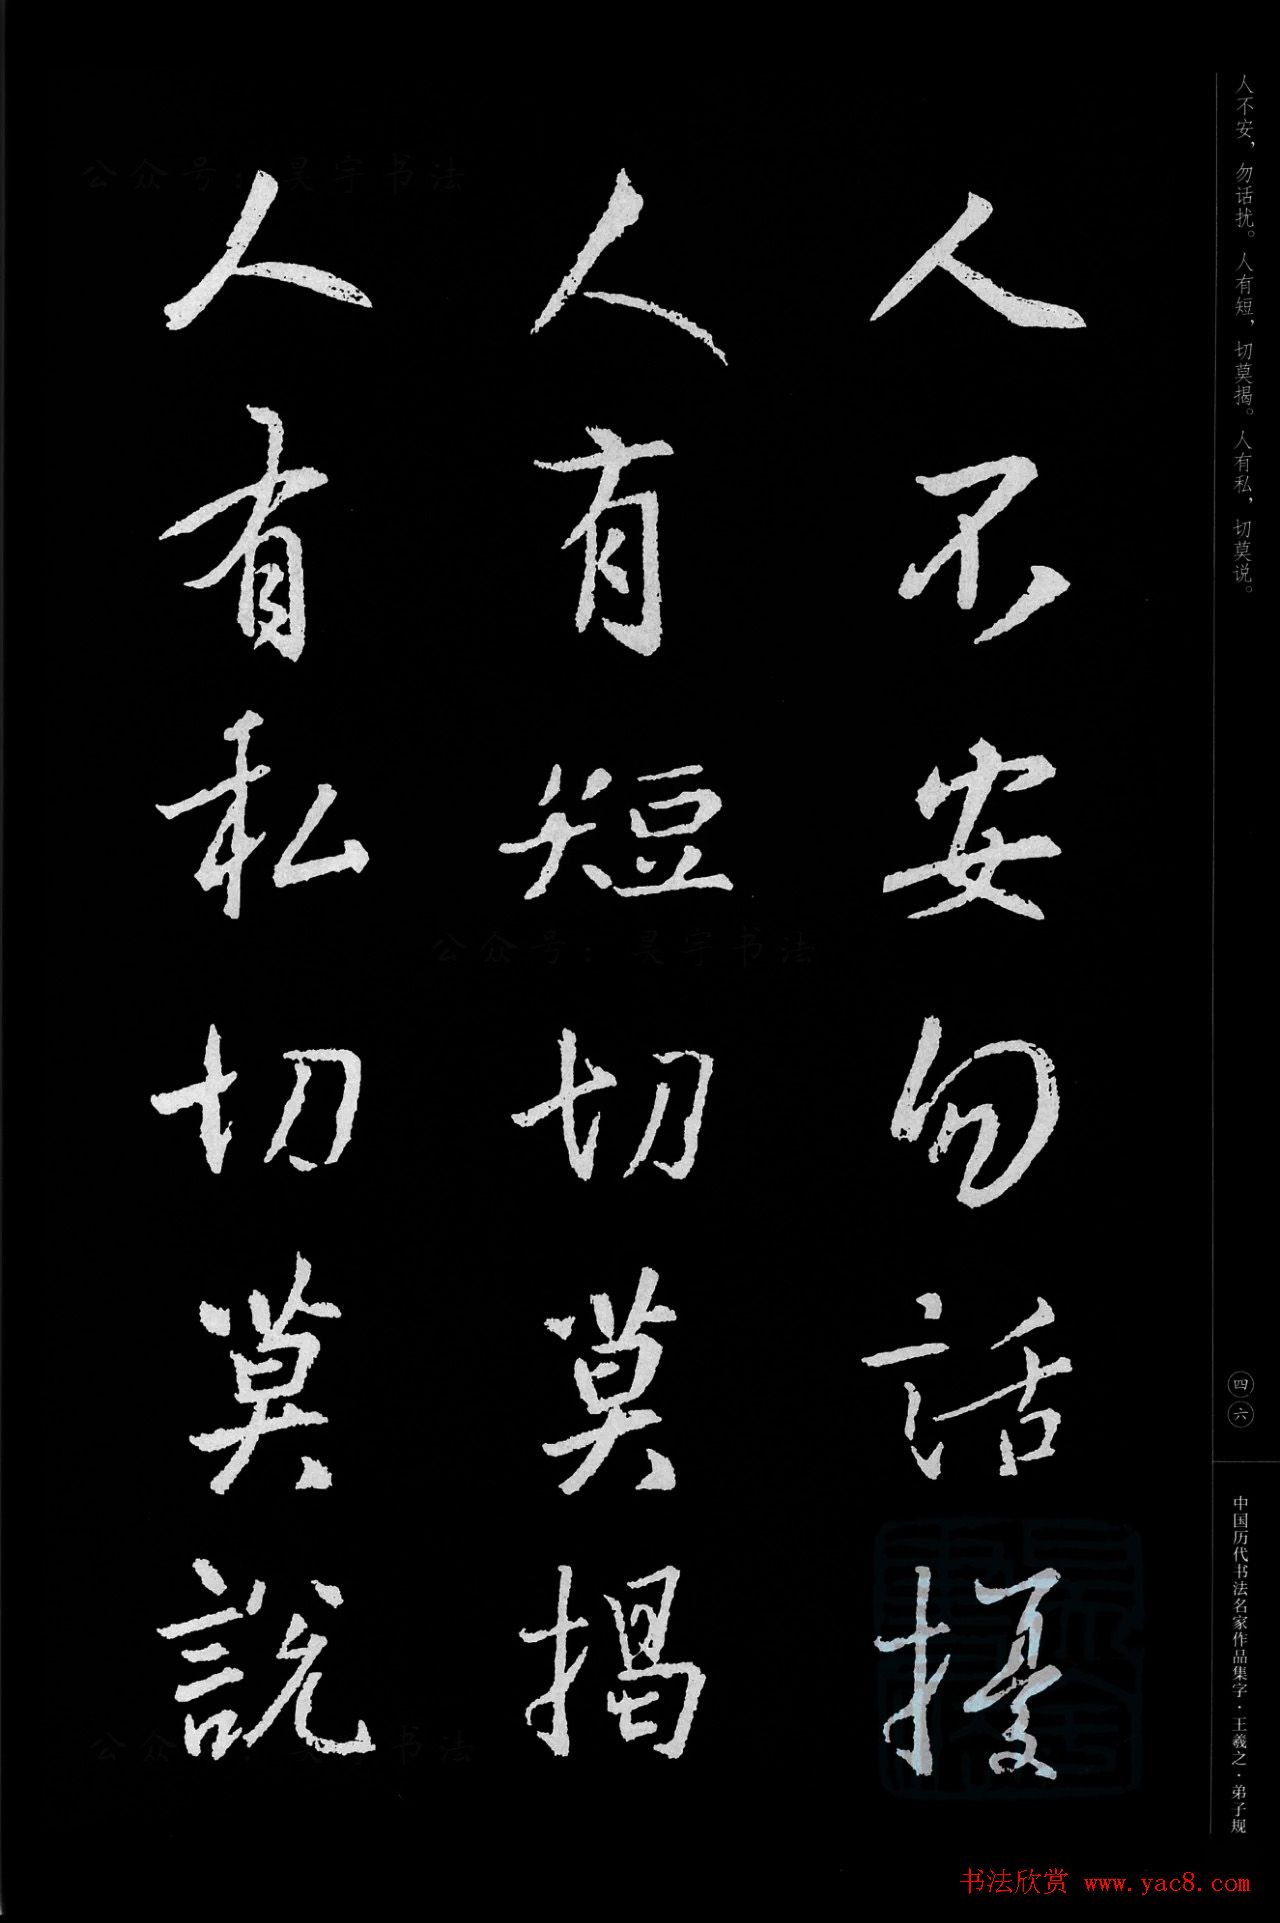 人不安勿話擾
人有短切莫揭
人有私切莫說
人不安，勿话扰。人有短，切莫揭。人有私，切莫说。
四六
中国历代书法名家作品集字·王羲之·弟子规
公众号：昊宇书法
公众号：昊宇书法
公众号：昊宇书法
书法欣赏 www.yac8.com